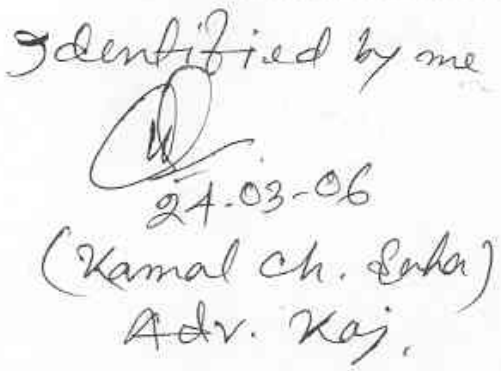 Identified by me
24-03-06
(Kamal Ch. Saha)
Adv. Kaj.